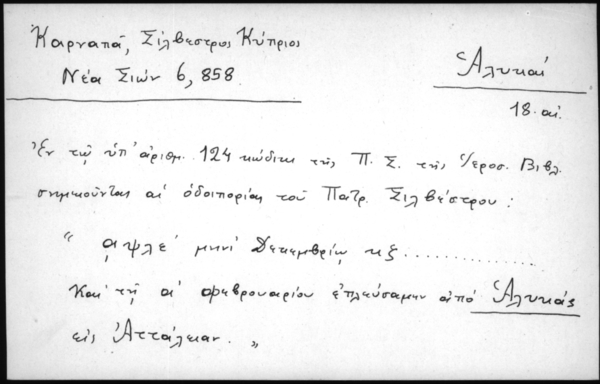 Καρναπᾶ, Σίλβεστρος Κύπριος
Νέα Σιών 6, 858.
Ἁλυκαί
18. αἰ.
Ἐν τῷ ὑπ' ἀριθμ. 124 κώδικι τῆς Π. Σ. τῆς Ἱεροσ. Βιβλ.
σημειοῦνται αἱ ὁδοιπορίαι τοῦ Πατρ. Σιλβέστρου :
“ ͵αψλε΄ μηνὶ Δεκεμβρίῳ κξ ..............
Καὶ τῇ α΄ φεβρουαρίου ἐπλεύσαμεν ἀπὸ Ἁλυκάς
εἰς Ἀττάλειαν. ”